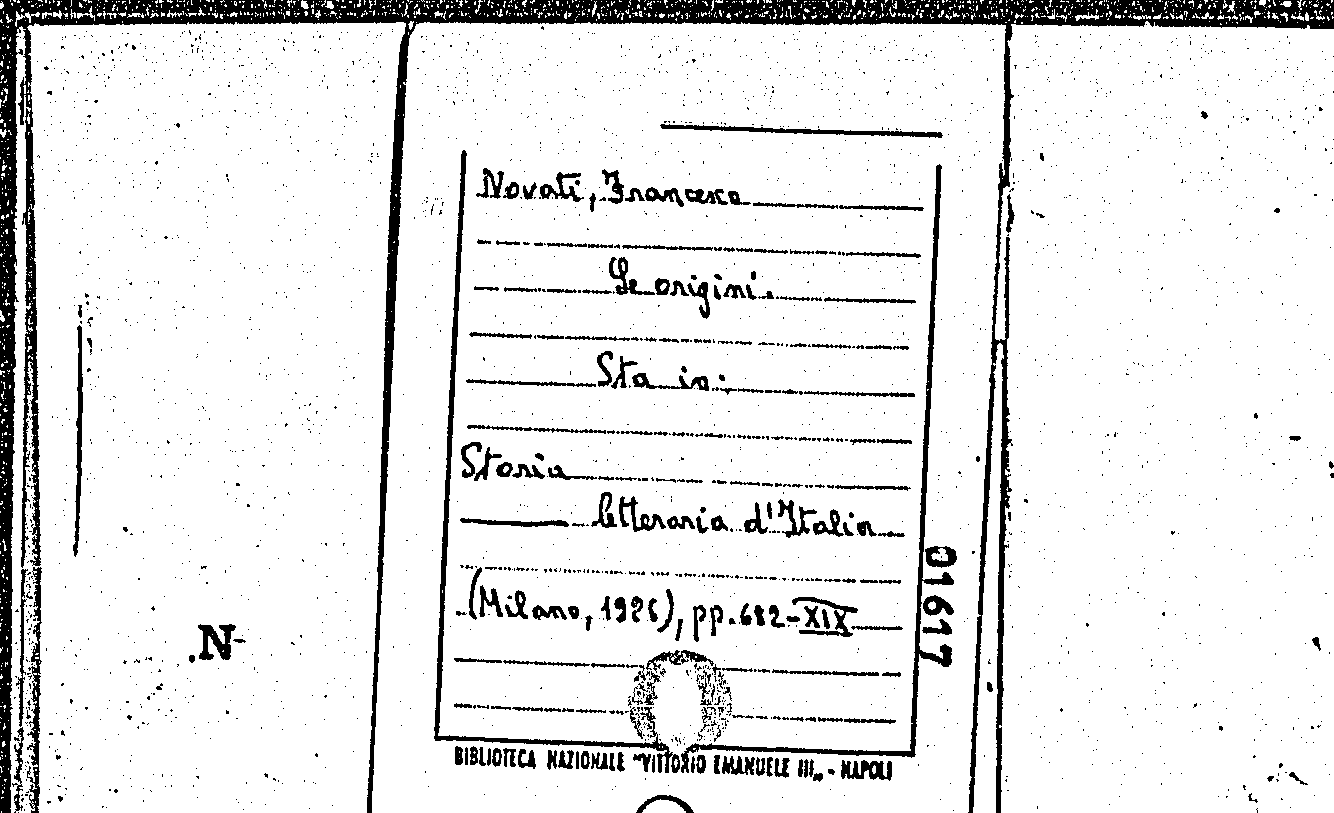 Novati, Francesco
Le origini.
Sta in:
Storia
letteraria d'Italia
(Milano, 1926), pp. 682-XIX
01617
.N-
BIBLIOTECA NAZIONALE "VITTORIO EMANUELE III„ - NAPOLI